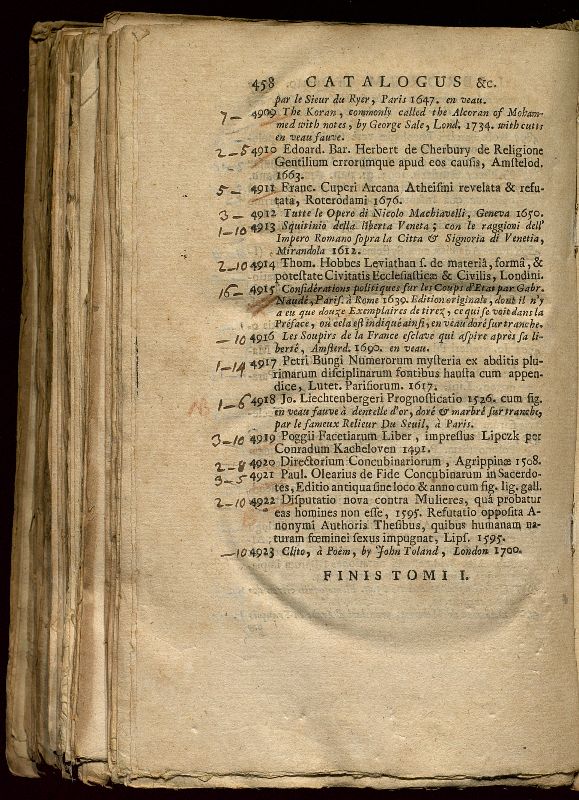 458 CATALOGUS &c.
par le Sieur du Ryer, Paris 1647. en veau.
7 – 4909 The Koran, commonly called the Alcoran of Moham-
med with notes, by George Sale, Lond. 1734. with cutts
en veau fauve.
2 – 5 4910 Edoard. Bar. Herbert de Cherbury de Religione
Gentilium errorumque apud eos causis, Amstelod.
1663.
5 – 4911 Franc. Cuperi Arcana Atheismi revelata & refu-
tata, Roterodami 1676.
3 – 4912 Tutte le Opere di Nicolo Machiavelli, Geneva 1650.
1 – 10 4913 Squitinio della liberta Veneta; con le raggioni dell'
Impero Romano sopra la Citta & Signoria di Venetia,
Mirandola 1612.
2 – 10 4914 Thom. Hobbes Leviathan s. de materiâ, formâ, &
potestate Civitatis Ecclesiasticæ & Civilis, Londini.
16 – 4915 Considérations politiques sur les Coups d'Etat par Gabr.
Naudé, Paris. à Rome 1639. Edition originale, dont il n'y
a eu que douze Exemplaires de tirez, ce qui se voit dans la
Préface, ou cela est indiqué ainsi, en veau doré sur tranche.
– 10 4916 Les Soupirs de la France esclave qui aspire après sa li-
berté, Amsterd. 1690. en veau.
1 – 14 4917 Petri Bungi Numerorum mysteria ex abditis plu-
rimarum disciplinarum fontibus hausta cum appen-
dice, Lutet. Parisiorum. 1617.
1 – 6 4918 Jo. Liechtenbergeri Prognosticatio 1526. cum fig.
en veau fauve à dentelle d'or, doré & marbré sur tranche,
par le fameux Relieur Du Seuil, à Paris.
3 – 10 4919 Poggii Facetiarum Liber, impressus Lipczk per
Conradum Kacheloven 1491.
2 – 8 4920 Directorium Concubinariorum, Agrippinæ 1508.
3 – 5 4921 Paul. Olearius de Fide Concubinarum in Sacerdo-
tes, Editio antiqua sine loco & anno cum fig. lig. gall.
2 – 10 4922 Disputatio nova contra Mulieres, quâ probatur
eas homines non esse, 1595. Refutatio opposita A-
nonymi Authoris Thesibus, quibus humanam na-
turam fœminei sexus impugnat, Lips. 1595.
– 10 4923 Clito, à Poëm, by John Toland, London 1700.
FINIS TOMI I.